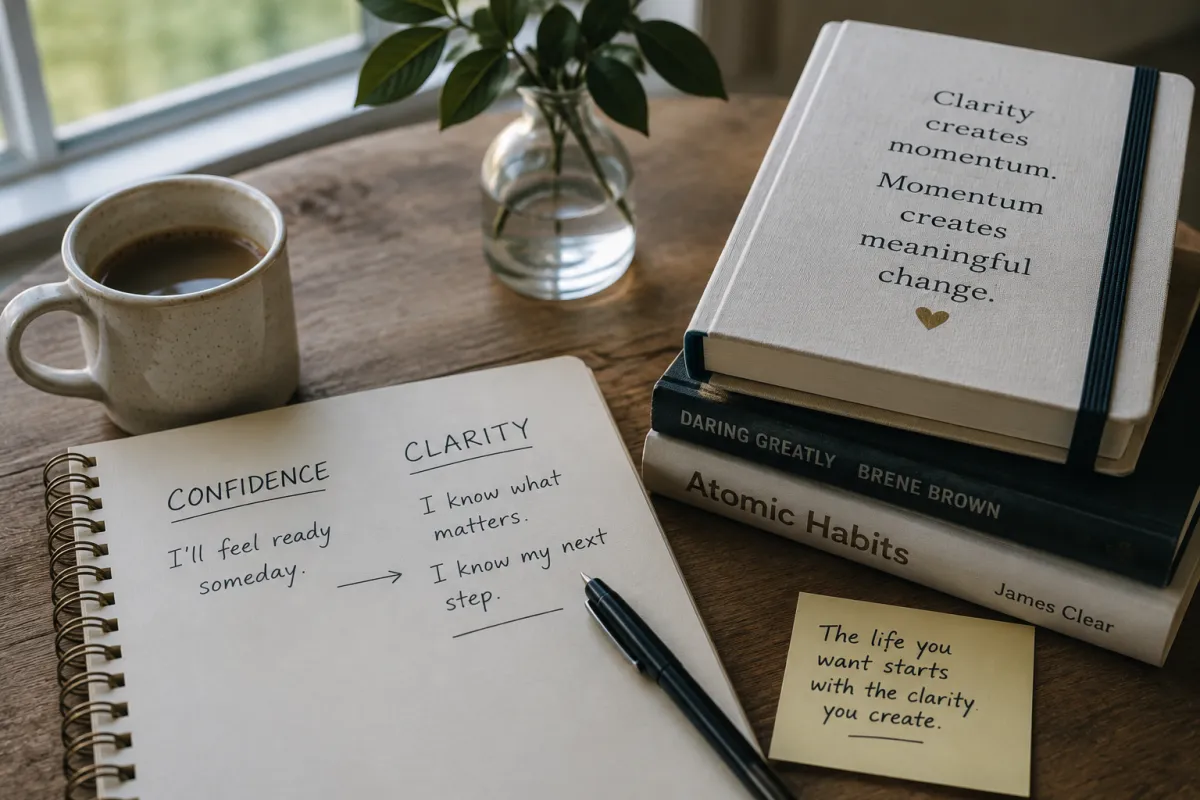 CONFIDENCE
I'll feel ready
someday.
CLARITY
I know what
matters.
I know my next
step.
Clarity
creates
momentum.
Momentum
creates
meaningful
change.
DARING GREATLY BRENE BROWN
Atomic Habits James Clear
The life you
want starts
with the clarity
you create.